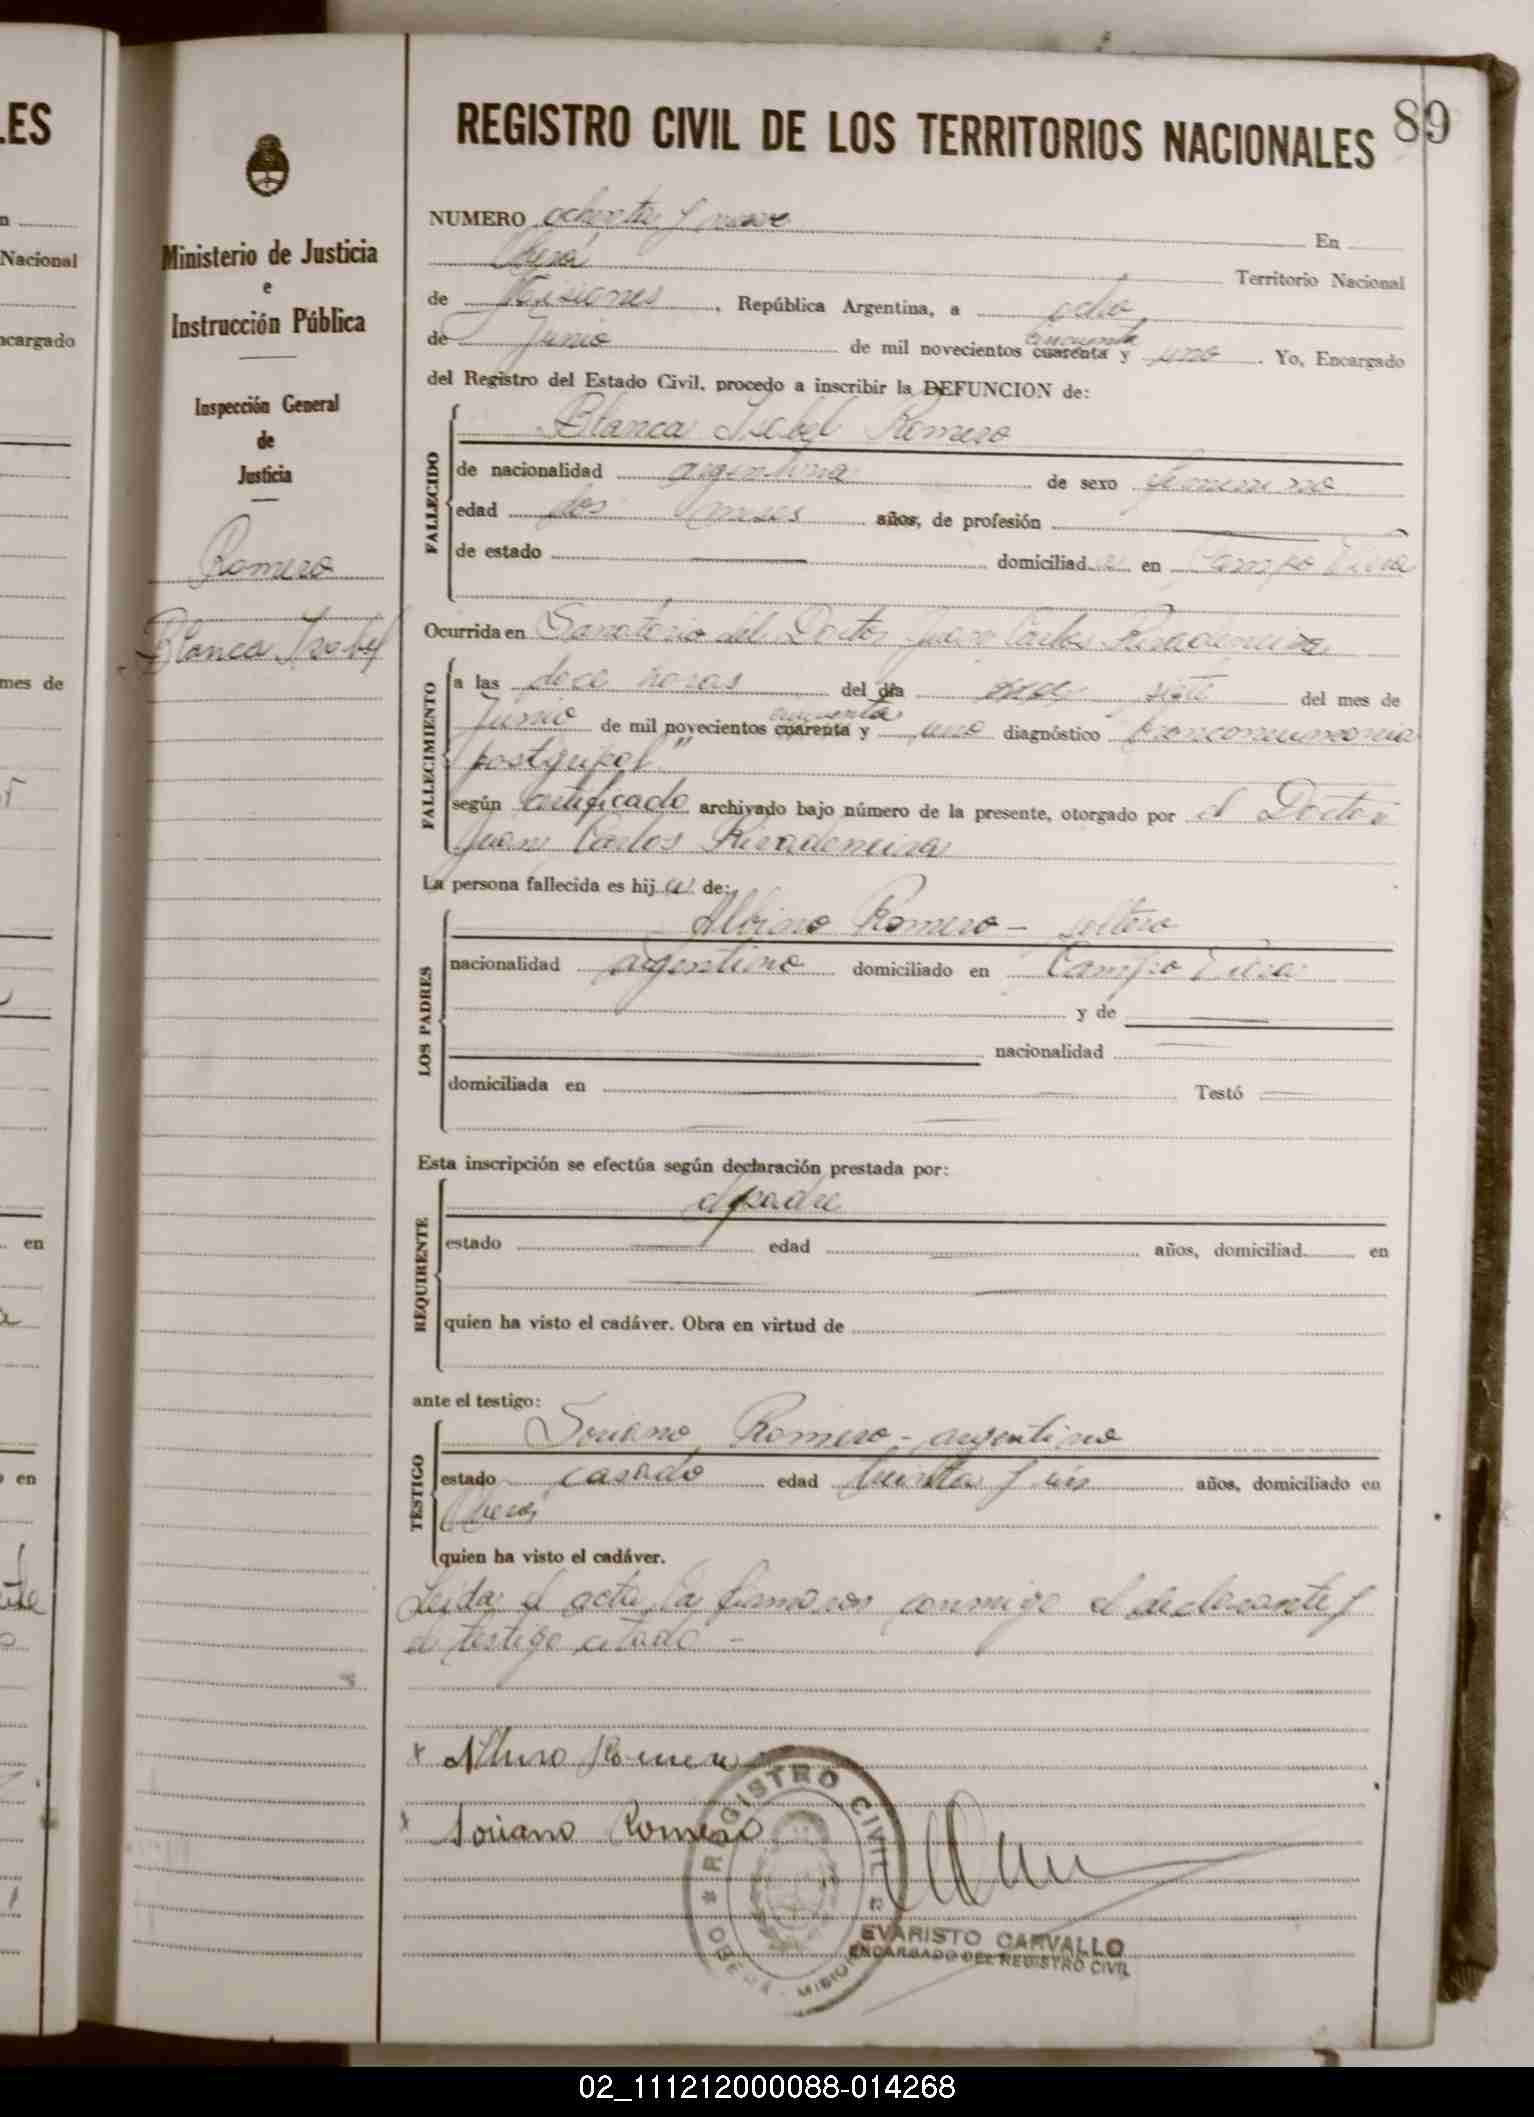 89
REGISTRO CIVIL DE LOS TERRITORIOS NACIONALES
Ministerio de Justicia
e
Instrucción Pública
Inspección General
de
Justicia
Romero
Blanca Isabel
NUMERO ochenta y nueve En
Oberá Territorio Nacional
de Misiones, República Argentina, a ocho
cincuenta
de Junio de mil novecientos cuarenta y uno. Yo, Encargado
del Registro del Estado Civil, procedo a inscribir la DEFUNCION de:
FALLECIDO
Blanca Isabel Romero
de nacionalidad argentina de sexo femenino
edad dos meses años, de profesión
de estado domiciliada en Campo Viera
Ocurrida en Sanatorio del Doctor Juan Carlos Rivadeneira
FALLECIMIENTO
a las doce horas del día siete del mes de
cincuenta
Junio de mil novecientos cuarenta y uno diagnóstico bronconeumonia
postgripal"
según certificado archivado bajo número de la presente, otorgado por el Doctor
Juan Carlos Rivadeneira
La persona fallecida es hija de:
LOS PADRES
Albino Romero - soltero
nacionalidad argentino domiciliado en Campo Viera
y de
nacionalidad
domiciliada en Testó
Esta inscripción se efectúa según declaración prestada por:
REQUIRENTE
el padre
estado edad años, domiciliad en
quien ha visto el cadáver. Obra en virtud de
ante el testigo:
TESTIGO
Soriano Romero - argentino
estado casado edad treinta y seis años, domiciliado en
Oberá
quien ha visto el cadáver.
Leida el acta la firmaron conmigo el declarante y
el testigo citado -
x Albino Romero
x Soriano Romero
REGISTRO CIVIL
OBERÁ - MISIONES
EVARISTO CARVALLO
ENCARGADO DEL REGISTRO CIVIL
LES
n
Nacional
ncargado
mes de
en
en
02_111212000088-014268